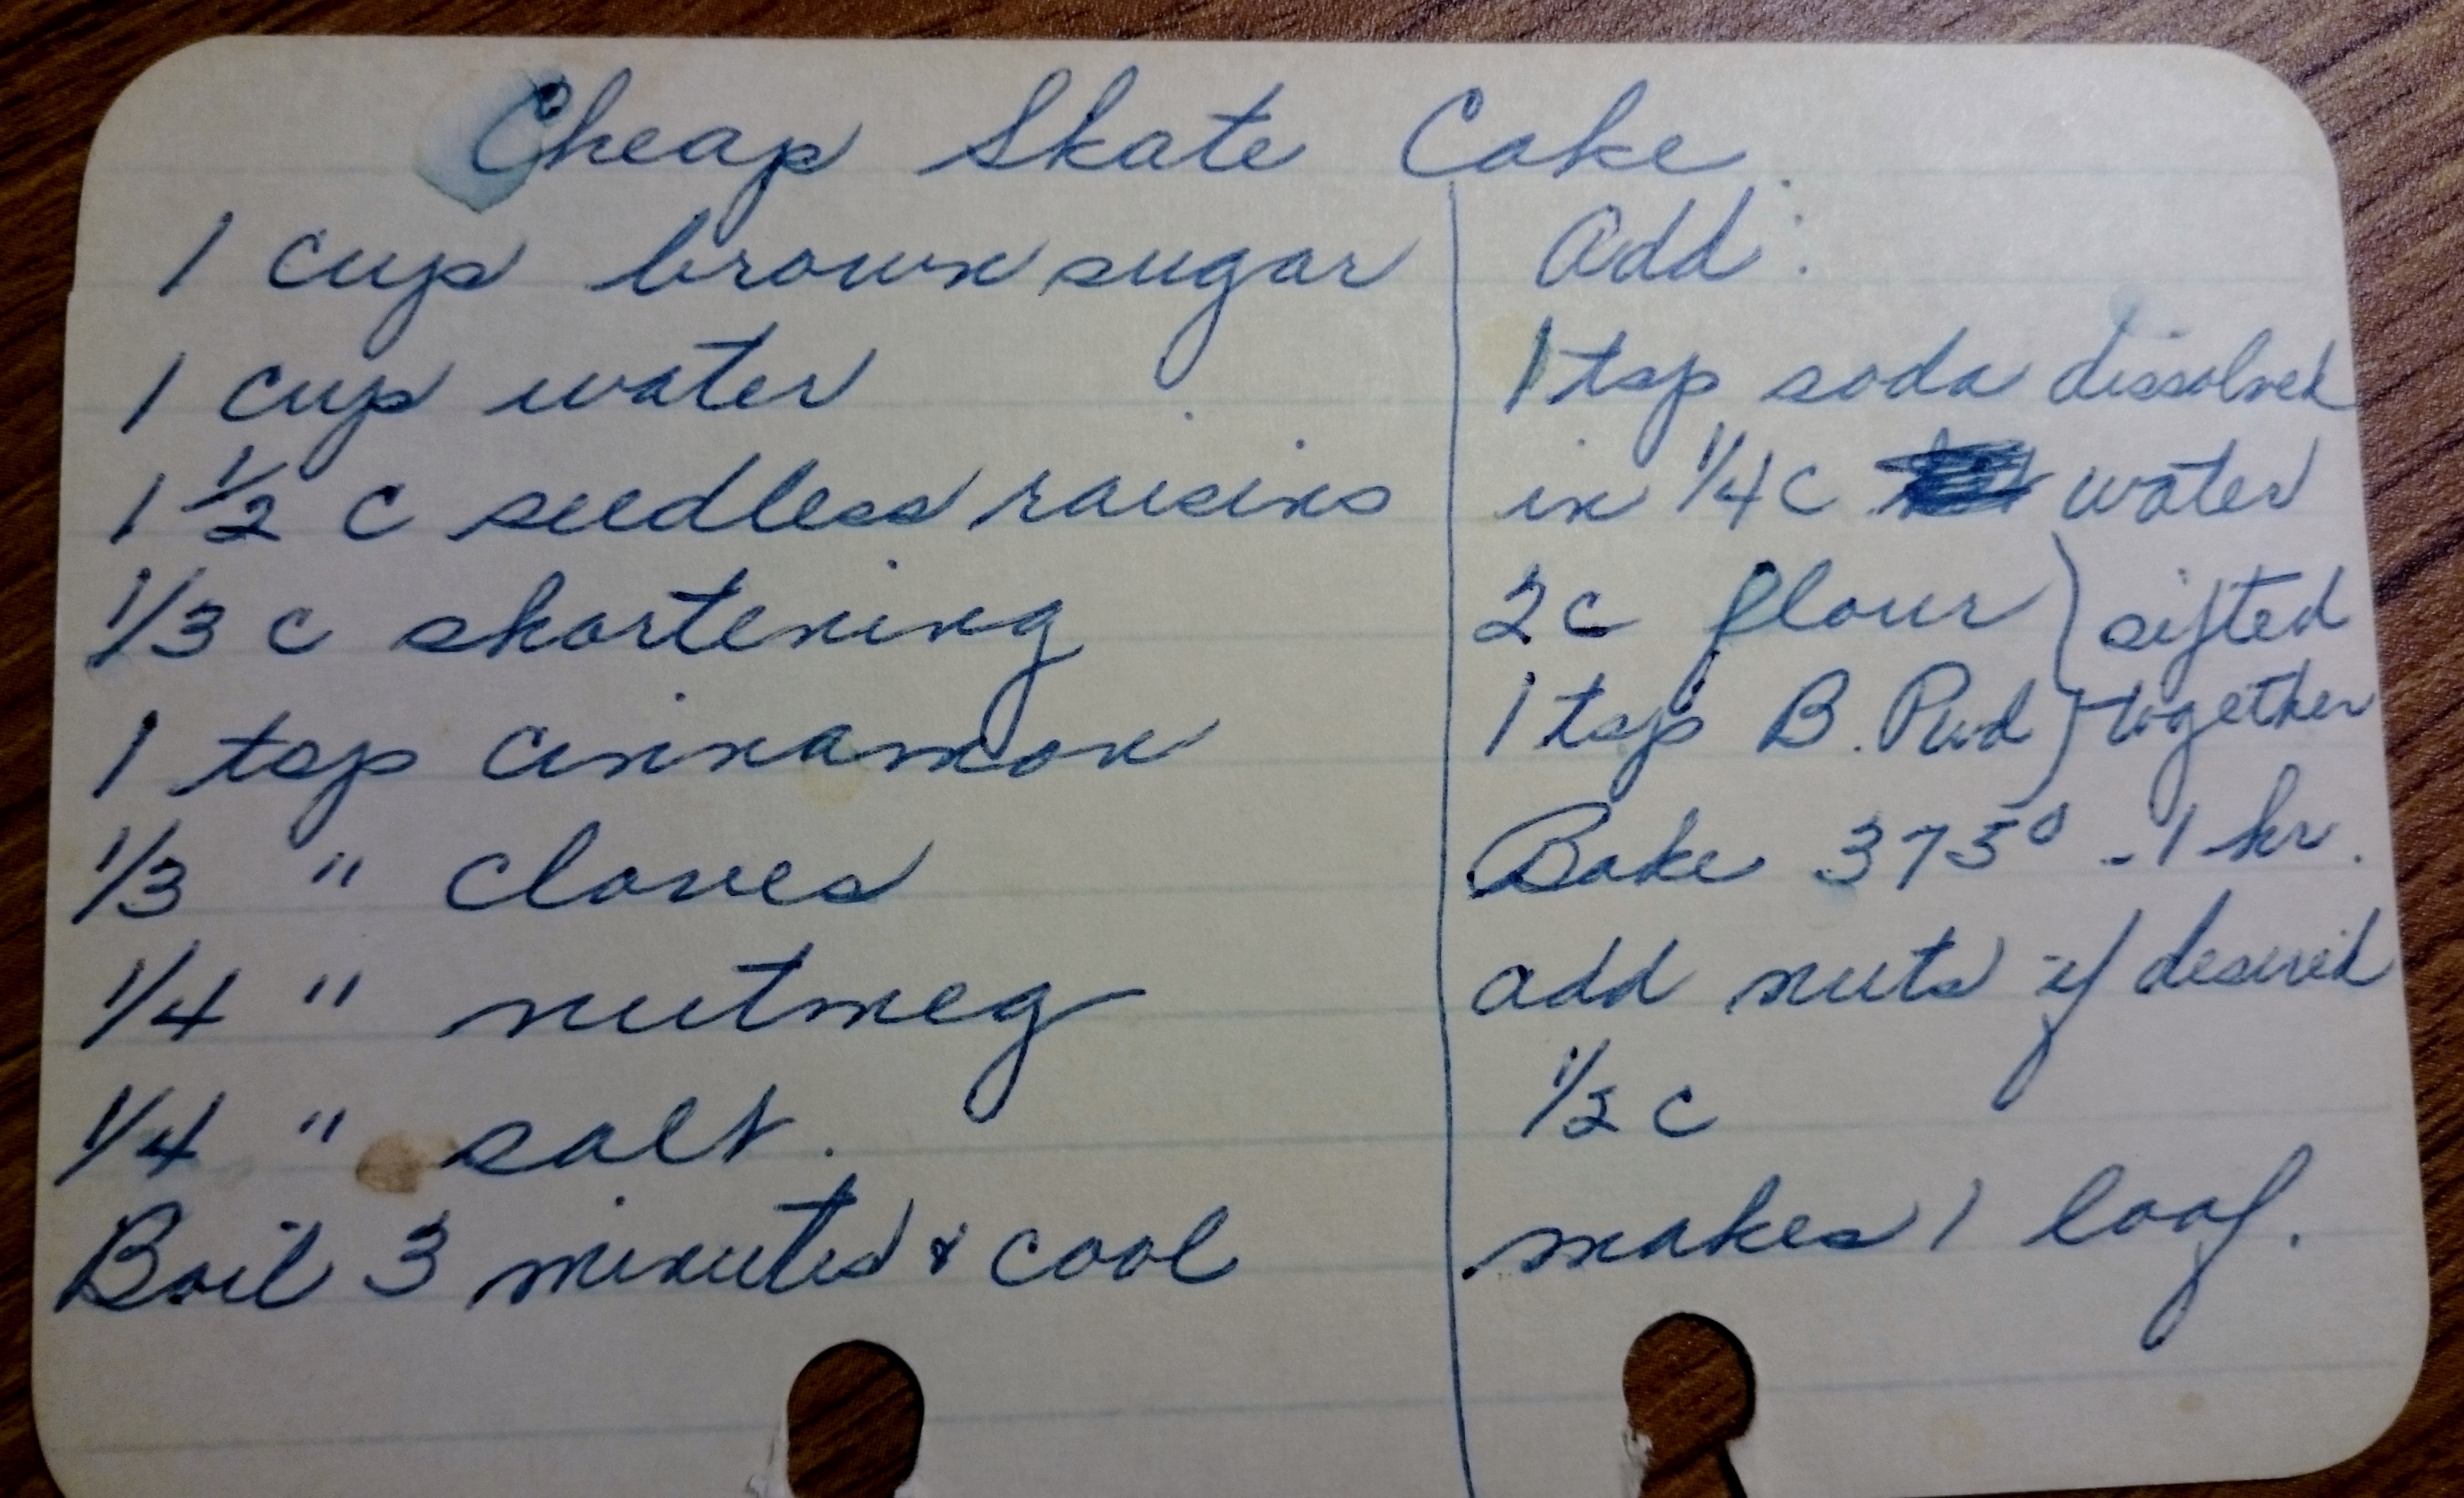 Cheap Skate Cake.
1 cup brown sugar
1 cup water
1 1/2 c seedless raisins
1/3 c shortening
1 tsp cinnamon
1/3 " cloves
1/4 " nutmeg
1/4 " salt.
Boil 3 minutes & cool
Add:
1 tsp soda dissolved
in 1/4 c water
2 c flour } sifted
1 tsp B. Pwd } together
Bake 375° - 1 hr.
add nuts if desired
1/2 c
makes 1 loaf.